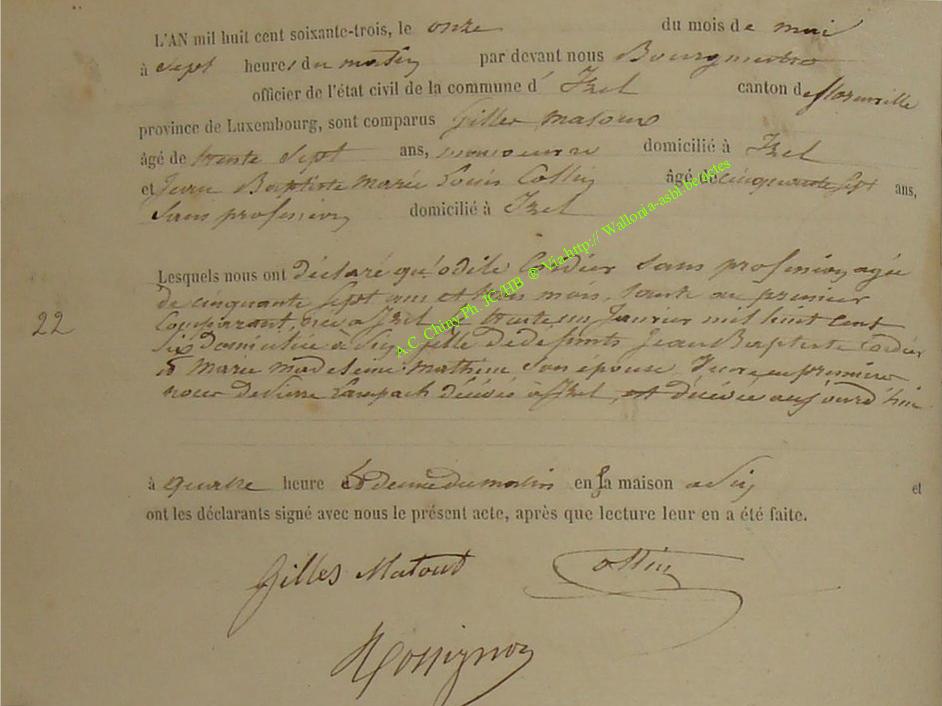 L'AN mil huit cent soixante-trois, le onze du mois de mai
à sept heures du matin par devant nous Bourgmestre
officier de l'état civil de la commune d' Izel canton de florenville
province de Luxembourg, sont comparus Gilles
âgé de trente sept ans, domicilié à Izel
et Jean Baptiste Marie Louis Collin âgé de cinquante sept ans,
sans profession domicilié à Izel
Lesquels nous ont déclaré qu'odile Cordier sans profession, agée
de cinquante sept ans et trois mois, tante au premier
comparant, née a Izel le trente un janvier mil huit cent
six domiciliée a fille de defunts Jean Baptiste Cordier
et Marie madeleine Mathieu son épouse, en premieres
noces de Pierre décédé a Izel, est décédée aujourd'hui
22
à quatre heure et demie du matin en la maison a et
ont les déclarants signé avec nous le présent acte, après que lecture leur en a été faite.
Gilles Matout Collin
Rossignon
A.C. Chiny Ph. JC/HB ® Via http:// Wallonia-asbl.be/actes